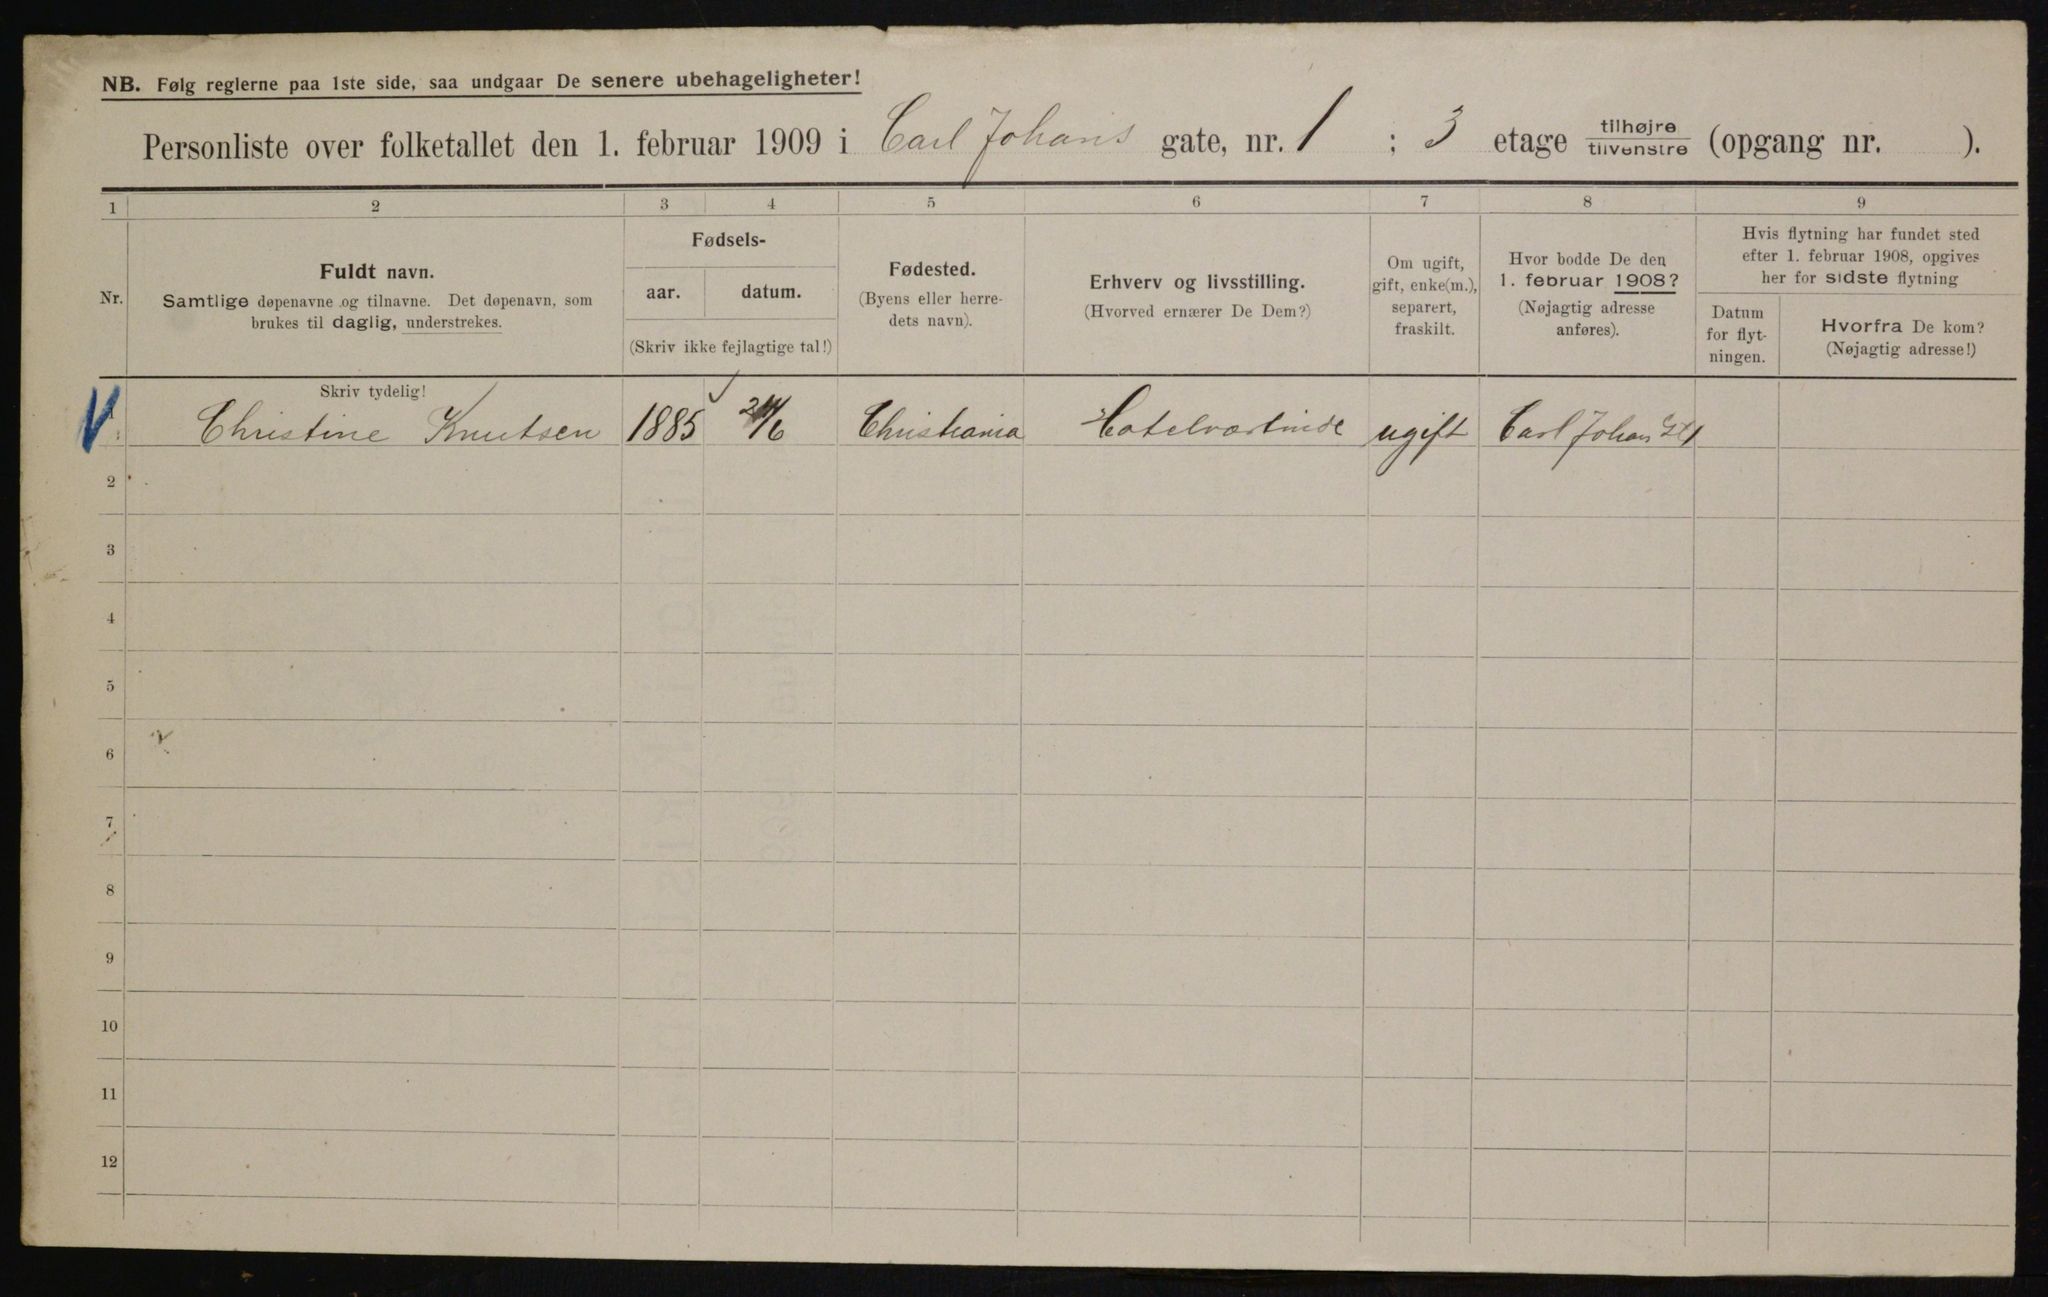 NB. Følg reglerne paa 1ste side, saa undgaar De senere ubehageligheter!
Personliste over folketallet den 1. februar 1909 i Carl Johans gate, nr. 1 ; 3 etage tilhøjre tilvenstre (opgang nr. ).
1 2 3 4 5 6 7 8 9
Nr.
Fuldt navn.
Samtlige døpenavne og tilnavne. Det døpenavn, som
brukes til daglig, understrekes.
Fødsels-
aar. datum.
(Skriv ikke fejlagtige tal!)
Fødested.
(Byens eller herre-
dets navn).
Erhverv og livsstilling.
(Hvorved ernærer De Dem?)
Om ugift,
gift, enke(m.),
separert,
fraskilt.
Hvor bodde De den
1. februar 1908?
(Nøjagtig adresse
anføres).
Hvis flytning har fundet sted
efter 1. februar 1908, opgives
her for sidste flytning
Datum
for flyt-
ningen.
Hvorfra De kom?
(Nøjagtig adresse!)
Skriv tydelig!
1 Christine Knutsen 1885 Christiania Hotelværtinde ugift Carl Johan gt 1
2
3
4
5
6
7
8
9
10
11
12